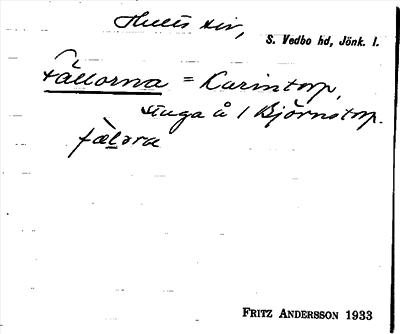 Hults sn,
S. Vedbo hd, Jönk. l.
Fällorna = Karintorp,
stuga å / Björnstorp.
fæ̀lɔra
FRITZ ANDERSSON 1933